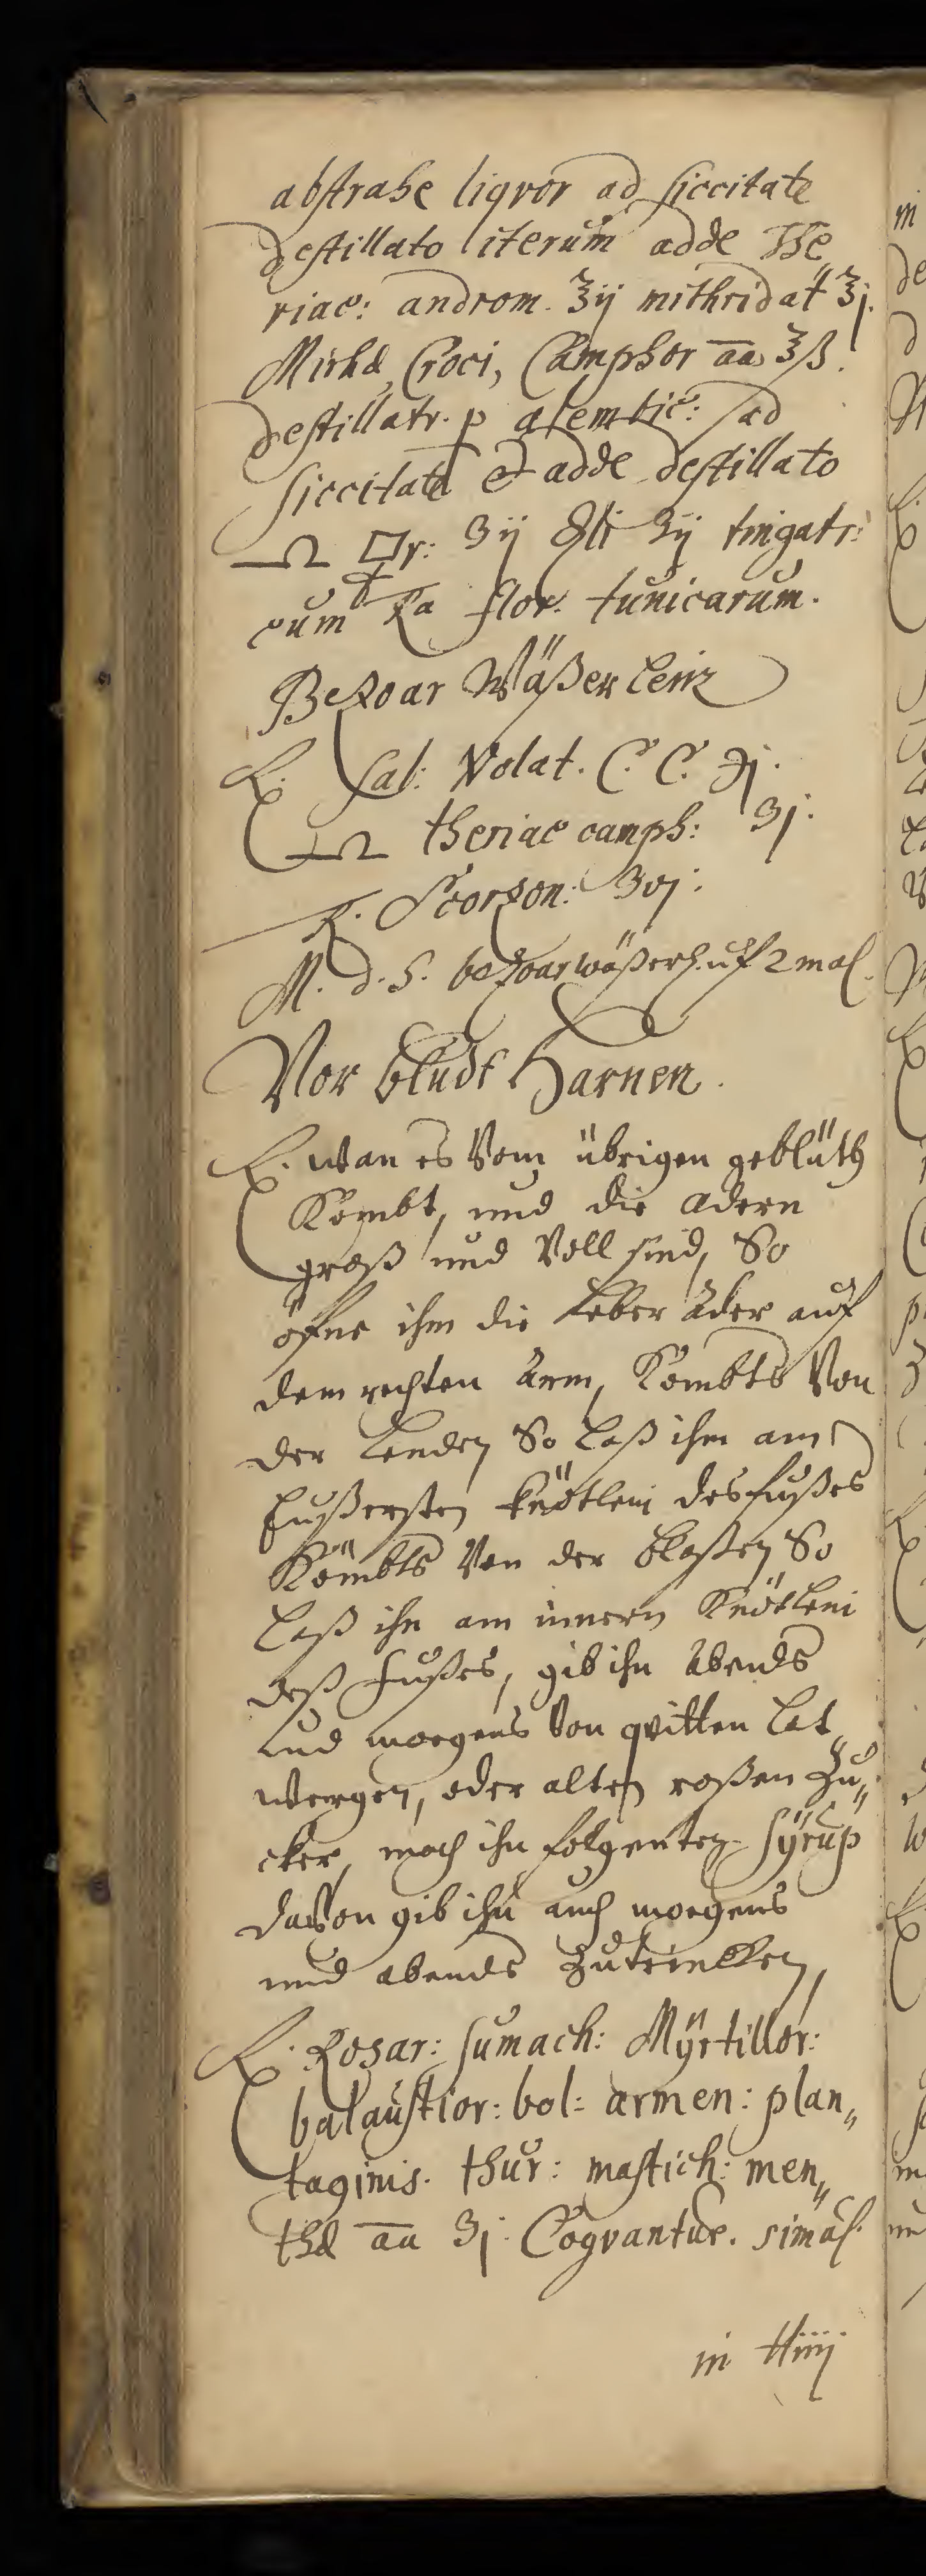 abstrahe liqvor ad siccitate
destillato iterum adde The
riac: androm. ℥ij mithridat ℥j.
Mirhæ, Croci, Camphor āā ℥ß.
destillatr. p alembic: ad
siccitate et adde destillato
♎ 🜿r: ʒij ʒij tingatr:
cum flor. tunicarum.
Bezoar Wäßerlein
℞. Sal: Volat. C. C. ℈j.
♎ theriac camph: ʒj.
Scorzon: ʒvj.
M. d. S. bezoarwäßerl. uf 2 mal.
Vor bludt Harnen.
℞. wan es Vom übrigen geblüth
Kombt, und die adern
groß und Voll sind, So
öfne ihm die Leber ader auf
dem rechten Arm, Kombts Von
der Lenden So Laß ihm am
Eußersten knötlein des fußes
Kömbts Von der blaßen So
Laß ihn am innern Knötlein
deß fußes, gib ihn Abends
und morgens Von qvitten Lat
wergen, oder alten roßen Zu„
cker, mach ihn folgenten Sÿrup
daVon gib ihn auch morgens
und abends Zutrincken,
℞. Rosar: sumach: Mÿrtillor:
balaustior: bol: armen: plan„
taginis. thur: mastich: men„
thæ āā ʒj. Coqvantur. simul
in ℔iiij